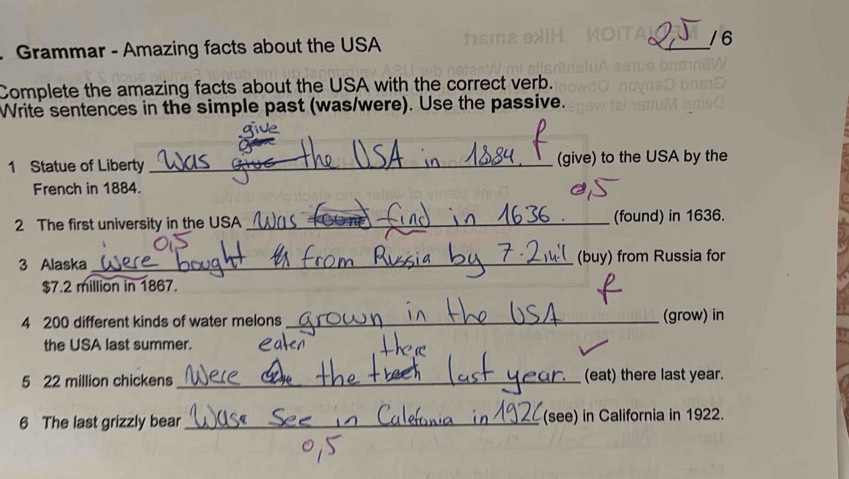 . Grammar - Amazing facts about the USA 2,5 / 6
Complete the amazing facts about the USA with the correct verb.
Write sentences in the simple past (was/were). Use the passive.
give
1 Statue of Liberty Was the USA in 1884. f (give) to the USA by the
French in 1884.
0,5
2 The first university in the USA Was find in 1636. (found) in 1636.
0,5
3 Alaska were bought from Russia by 7.2 mil (buy) from Russia for
$7.2 million in 1867.
f
4 200 different kinds of water melons grown in the USA (grow) in
the USA last summer.
eaten there
5 22 million chickens Were the last year. (eat) there last year.
6 The last grizzly bear Was see in Calefonia in 192 (see) in California in 1922.
0,5